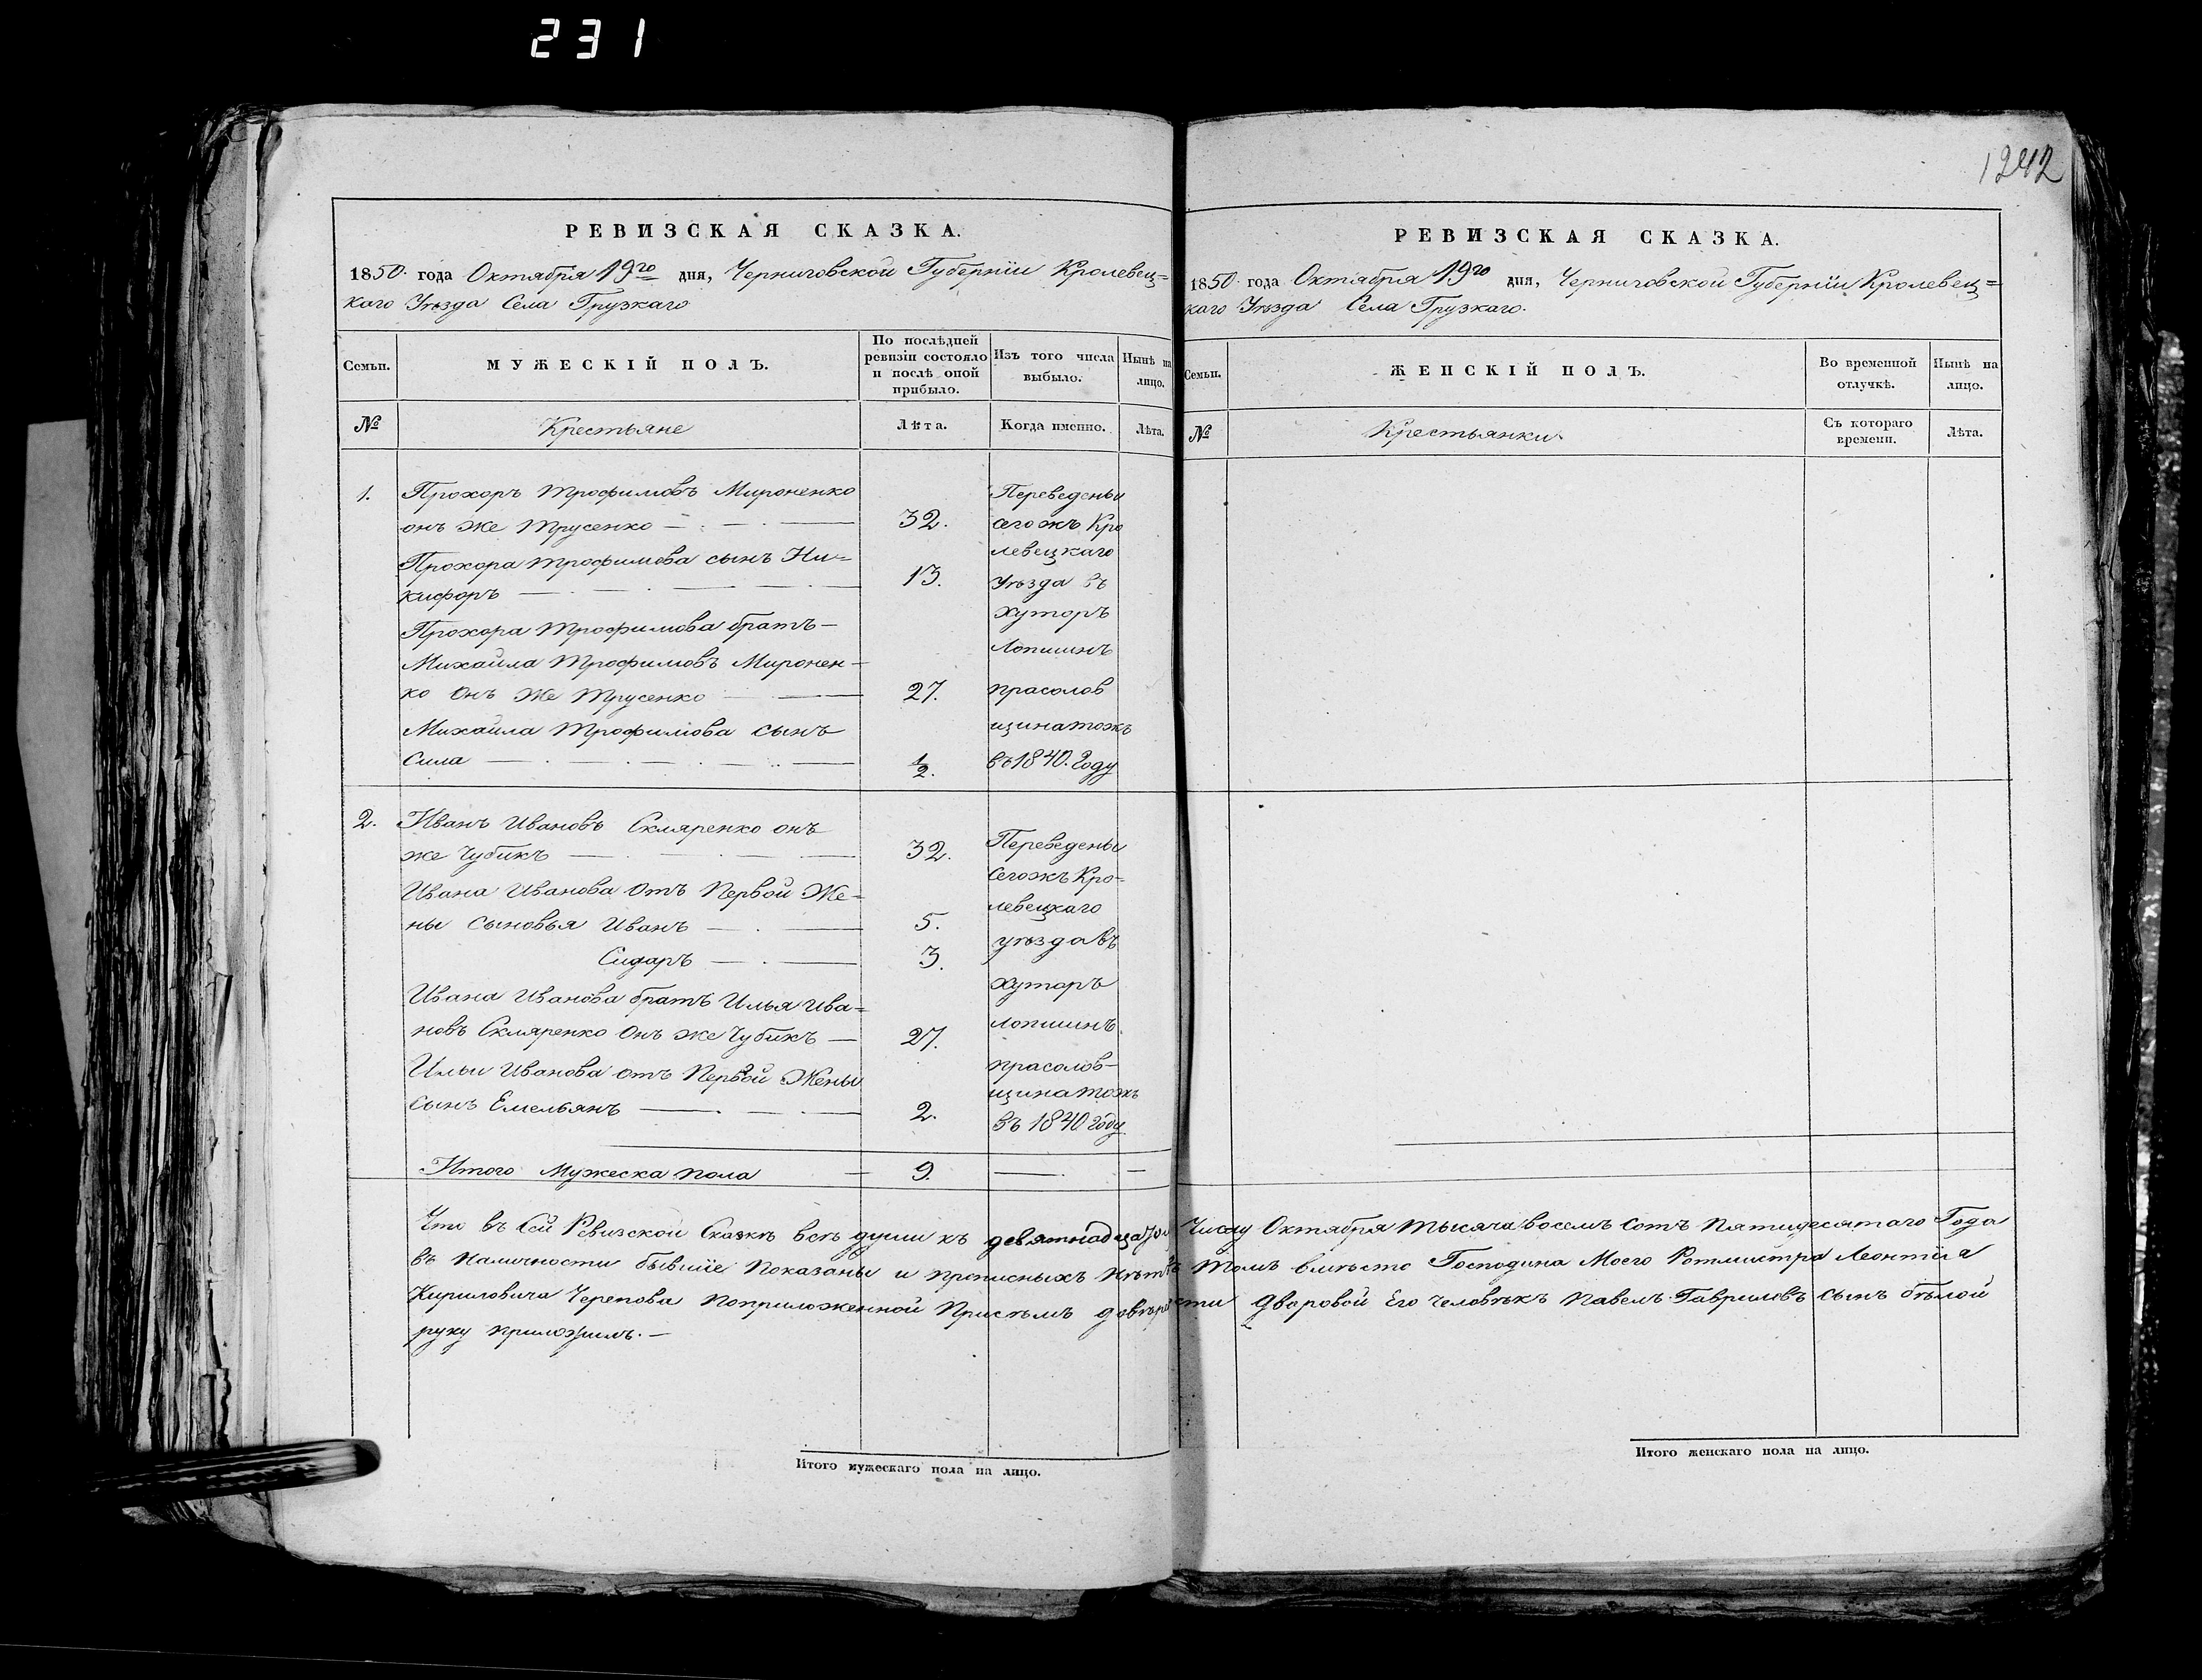 231
1242
РЕВИЗСКАЯ СКАЗКА.
1850 года Октября 19го дня, Черниговской Губерніи Кролевец=
каго Уѣзда Села Грузкаго
Семьи.
МУЖЕСКІЙ ПОЛЪ.
По послѣдней
ревизіи состояло
и послѣ оной
прибыло.
Изъ того числа
выбыло.
Нынѣ на
лицо.
№
Крестьяне
Лѣта.
Когда именно.
Лѣта.
1.
Прохоръ Трофимовъ Мироненко
онъ же Трусенко
32.
Прохора Трофимова сынъ Ни=
кифоръ
13.
Прохора Трофимова братъ
Михаила Трофимовъ Миронен-
ко онъ же Трусенко
27.
Михаила Трофимова сынъ
Сила
1/2.
Переведены
сегожъ Кро
левецкаго
Уѣзда въ
хуторъ
Лопишнъ
прасолов
щина тожъ
въ 1840. году
2.
Иванъ Ивановъ Скляренко онъ
же Чубикъ
32.
Ивана Иванова отъ Первой Же=
ны сыновья Иванъ
5.
Сидаръ
3.
Ивана Иванова братъ Илья Ива=
новъ Скляренко онъ же Чубикъ
27.
Ильи Иванова отъ Первой Жены
сынъ Емельянъ
2.
Переведены
сегожъ Кро=
левецкаго
уѣзда въ
хуторъ
лопишнъ
прасолов-
щина тожъ
въ 1840 году
Итого Мужеска пола
9.
РЕВИЗСКАЯ СКАЗКА.
1850 года Октября 19го дня, Черниговской Губерніи Кролевец=
каго Уѣзда Села Грузкаго.
Семьи.
ЖЕНСКІЙ ПОЛЪ.
Во временной
отлучкѣ.
Нынѣ на
лицо.
№
Крестьянки
Съ котораго
времени.
Лѣта.
Что въ Сей Ревизской Сказкѣ всѣ души къ девятнадцатому Числу Октября тысяча восемъ сотъ пятидесятаго Года
въ наличности бывшіе показаны и прописныхъ нѣтъ въ томъ вмѣсто Господина Моего Ротмистра Леонтія
Кириловича Черепова поприложенной Присемъ довѣрености дворовой Его человѣкъ Павелъ Гавриловъ сынъ бѣлой
руку приложилъ.
Итого мужескаго пола на лицо.
Итого женскаго пола на лицо.